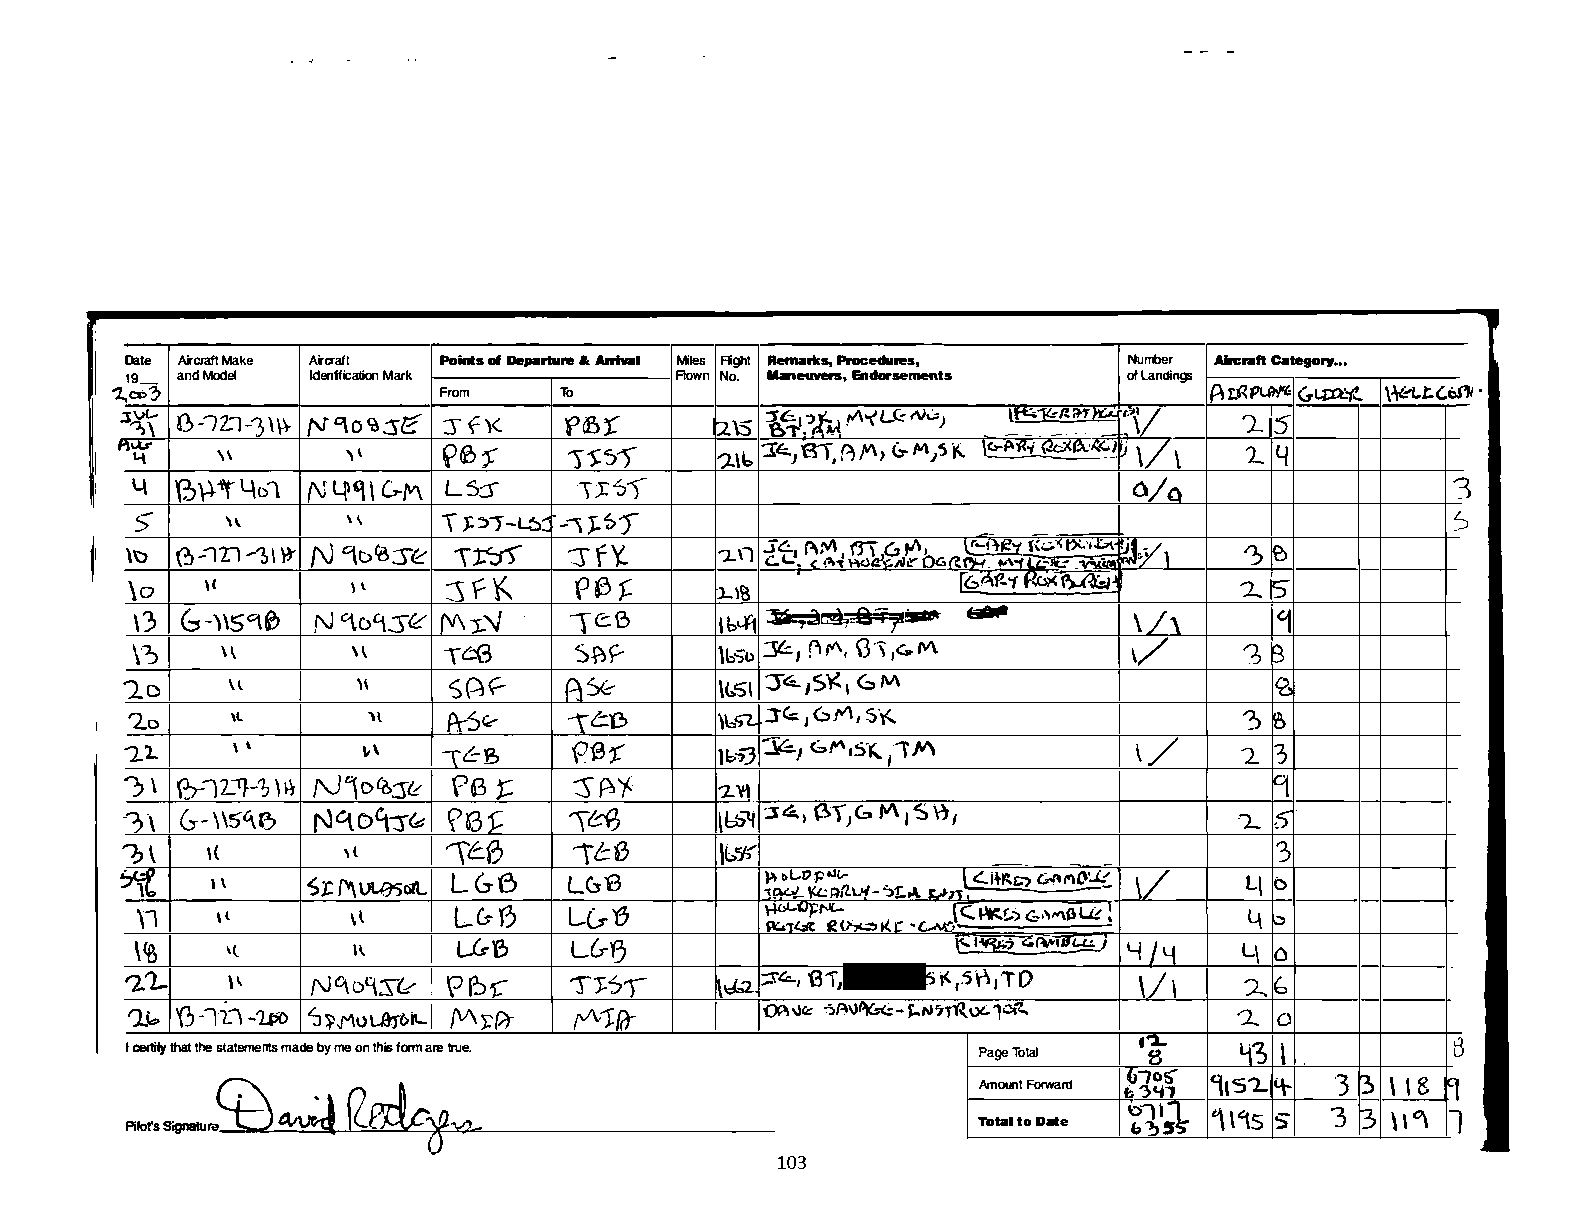 Date Aircraft Make Aircraft Points of Departure & Arrival Miles Flight Remarks, Procedures, Number Aircraft Category...
19__ and Model Identification Mark Flown No. Maneuvers, Endorsements of Landings
2003 From To AIRPLANE GLIDER HELICOPT.
JUL 31 B-727-31H N908JE JFK PBI 215 JE, SK, MYLENE, BT, AM 1/ 2 5
AUG 4 " " PBI TIST 216 JE, BT, AM, GM, SK GARY ROXBURGH 1/1 2 4
4 BH#407 N491GM LSJ TIST 0/0 3
5 " " TIST-LSJ-TIST 5
10 B-727-31H N908JE TIST JFK 217 JE, AM, BT, GM, GARY ROXBURGH /1 3 8
CC,
10 " " JFK PBI 218 GARY ROXBURGH 2 5
13 G-1159B N909JE MIV TEB 1649 1/1 9
13 " " TEB SAF 1650 JE, AM, BT, GM 1/ 3 8
20 " " SAF ASE 1651 JE, SK, GM 8
20 " " ASE TEB 1652 JE, GM, SK 3 8
22 " " TEB PBI 1653 JE, GM, SK, TM 1/ 2 3
31 B-727-31H N908JE PBI JAX 219 9
31 G-1159B N909JE PBI TEB 1654 JE, BT, GM, SH, 2 5
31 " " TEB TEB 1655 3
SEP 16 " SIMULATOR LGB LGB HOLDING CHRIS GAMBLE 1/ 4 0
17 " " LGB LGB HOLDING CHRIS GAMBLE 4 0
18 " " LGB LGB CHRIS GAMBLE 4/4 4 0
22 " N909JE PBI TIST 1662 JE, BT, SK, SH, TD 1/1 2 6
26 B-727-200 SIMULATOR MIA MIA DAVE SAVAGE-INSTRUCTOR 2 0
I certify that the statements made by me on this form are true. Page Total 12 8 43 1 8
Amount Forward 6705 6347 9152 4 3 3 118 9
Pilot's Signature David Rodgers Total to Date 6717 6355 9195 5 3 3 119 7
103